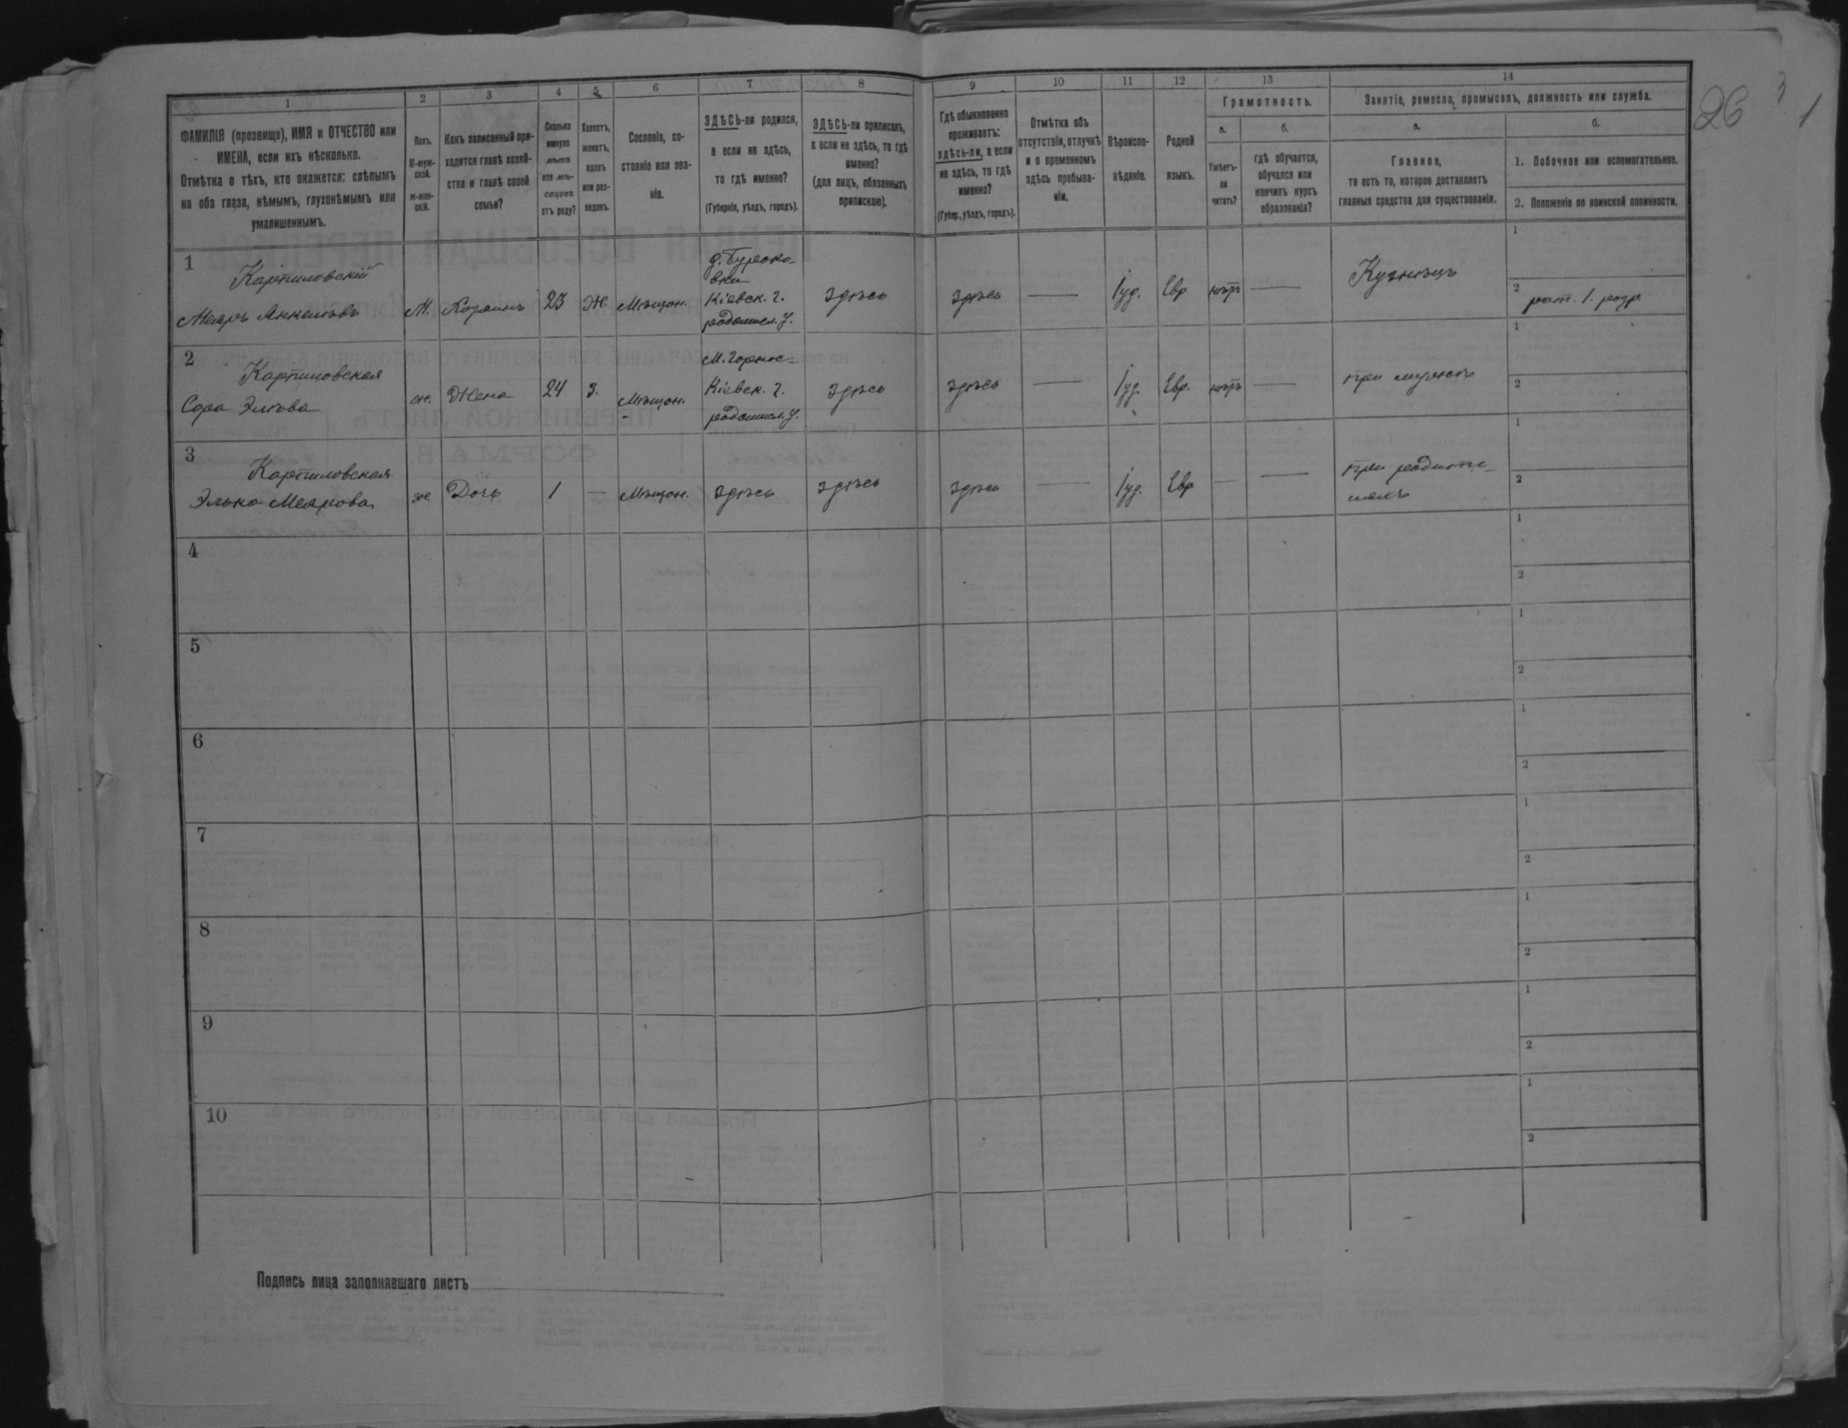 26
3
1
1
2
3
4
5
6
7
8
9
10
11
12
13
14
ФАМИЛІЯ (прозвище), ИМЯ и ОТЧЕСТВО или
ИМЕНА, если ихъ нѣсколько.
Отмѣтка о тѣхъ, кто окажется: слѣпымъ
на оба глаза, нѣмымъ, глухонѣмымъ или
умалишеннымъ.
Полъ.
М-муж-
ской.
Ж-жен-
скій.
Какъ записанный при-
ходится главѣ хозяй-
ства и главѣ своей
семьи?
Сколько
минуло
лѣтъ
или мѣ-
сяцевъ
отъ роду?
Холостъ,
женатъ,
вдовъ
или раз-
веденъ.
Сословіе, со-
стояніе или зва-
ніе.
ЗДѢСЬ-ли родился,
а если не здѣсь,
то гдѣ именно?
(Губернія, уѣздъ, городъ).
ЗДѢСЬ-ли приписанъ,
а если не здѣсь, то гдѣ
именно?
(для лицъ, обязанныхъ
припискою).
Гдѣ обыкновенно
проживаетъ:
здѣсь-ли, а если
не здѣсь, то гдѣ
именно?
(Губер., уѣздъ, городъ).
Отмѣтка объ
отсутствіи, отлучкѣ
и о временномъ
здѣсь пребыва-
ніи.
Вѣроиспо-
вѣданіе.
Родной
языкъ.
Грамотность.
а.
Умѣетъ-
ли
читать?
б.
гдѣ обучается,
обучался или
кончилъ курсъ
образованія?
Занятіе, ремесло, промыселъ, должность или служба.
а.
Главное,
то есть то, которое доставляетъ
главныя средства для существованія.
б.
1. Побочное или вспомогательное.
2. Положеніе по воинской повинности.
1
Карпиловскій
Меяръ Анкелевъ
М.
Хозяинъ
23
Ж.
Мѣщан.
Кіевск. г.
радомысл. у.
здѣсь
здѣсь
Іуд.
Евр
нѣтъ
Кузнецъ
1
2
рат. 1. разр
2
Карпиловская
Сора
ж.
Жена
24
З.
Мѣщан.
Кіевск. г.
радомысл. у.
здѣсь
здѣсь
Іуд.
Евр.
нѣтъ
при мужѣ
1
2
3
Карпиловская
Элька Меярова
ж
Дочь
1
Мѣщан.
здѣсь
здѣсь
здѣсь
Іуд.
Евр
при родите-
ляхъ
1
2
4
1
2
5
1
2
6
1
2
7
1
2
8
1
2
9
1
2
10
1
2
Подпись лица заполнявшаго листъ